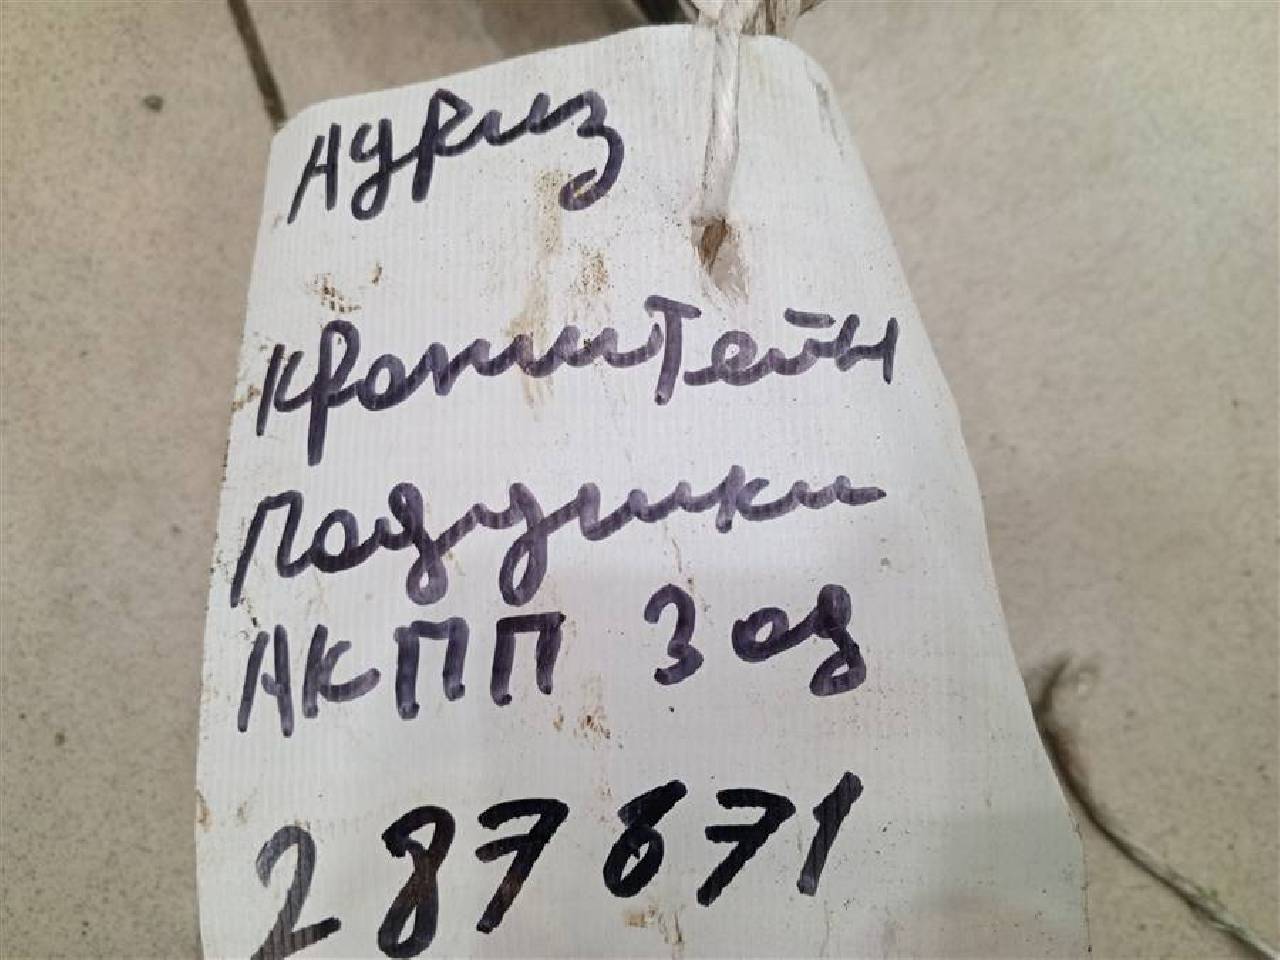 Аджиз
Кронштейн
Подушки
АКПП Зад
287671